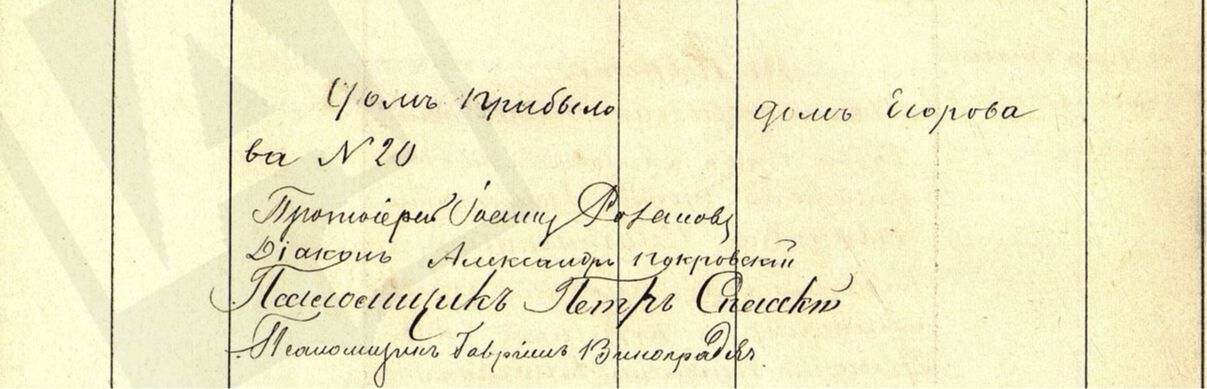 Домъ Прибыло
домъ Егорова
ва N 20
Протоіерей Іоаннъ Розановъ
Діаконъ Александръ Покровскій
Псаломщикъ Петръ Спасскій
Псаломщикъ Гавріилъ Виноградовъ